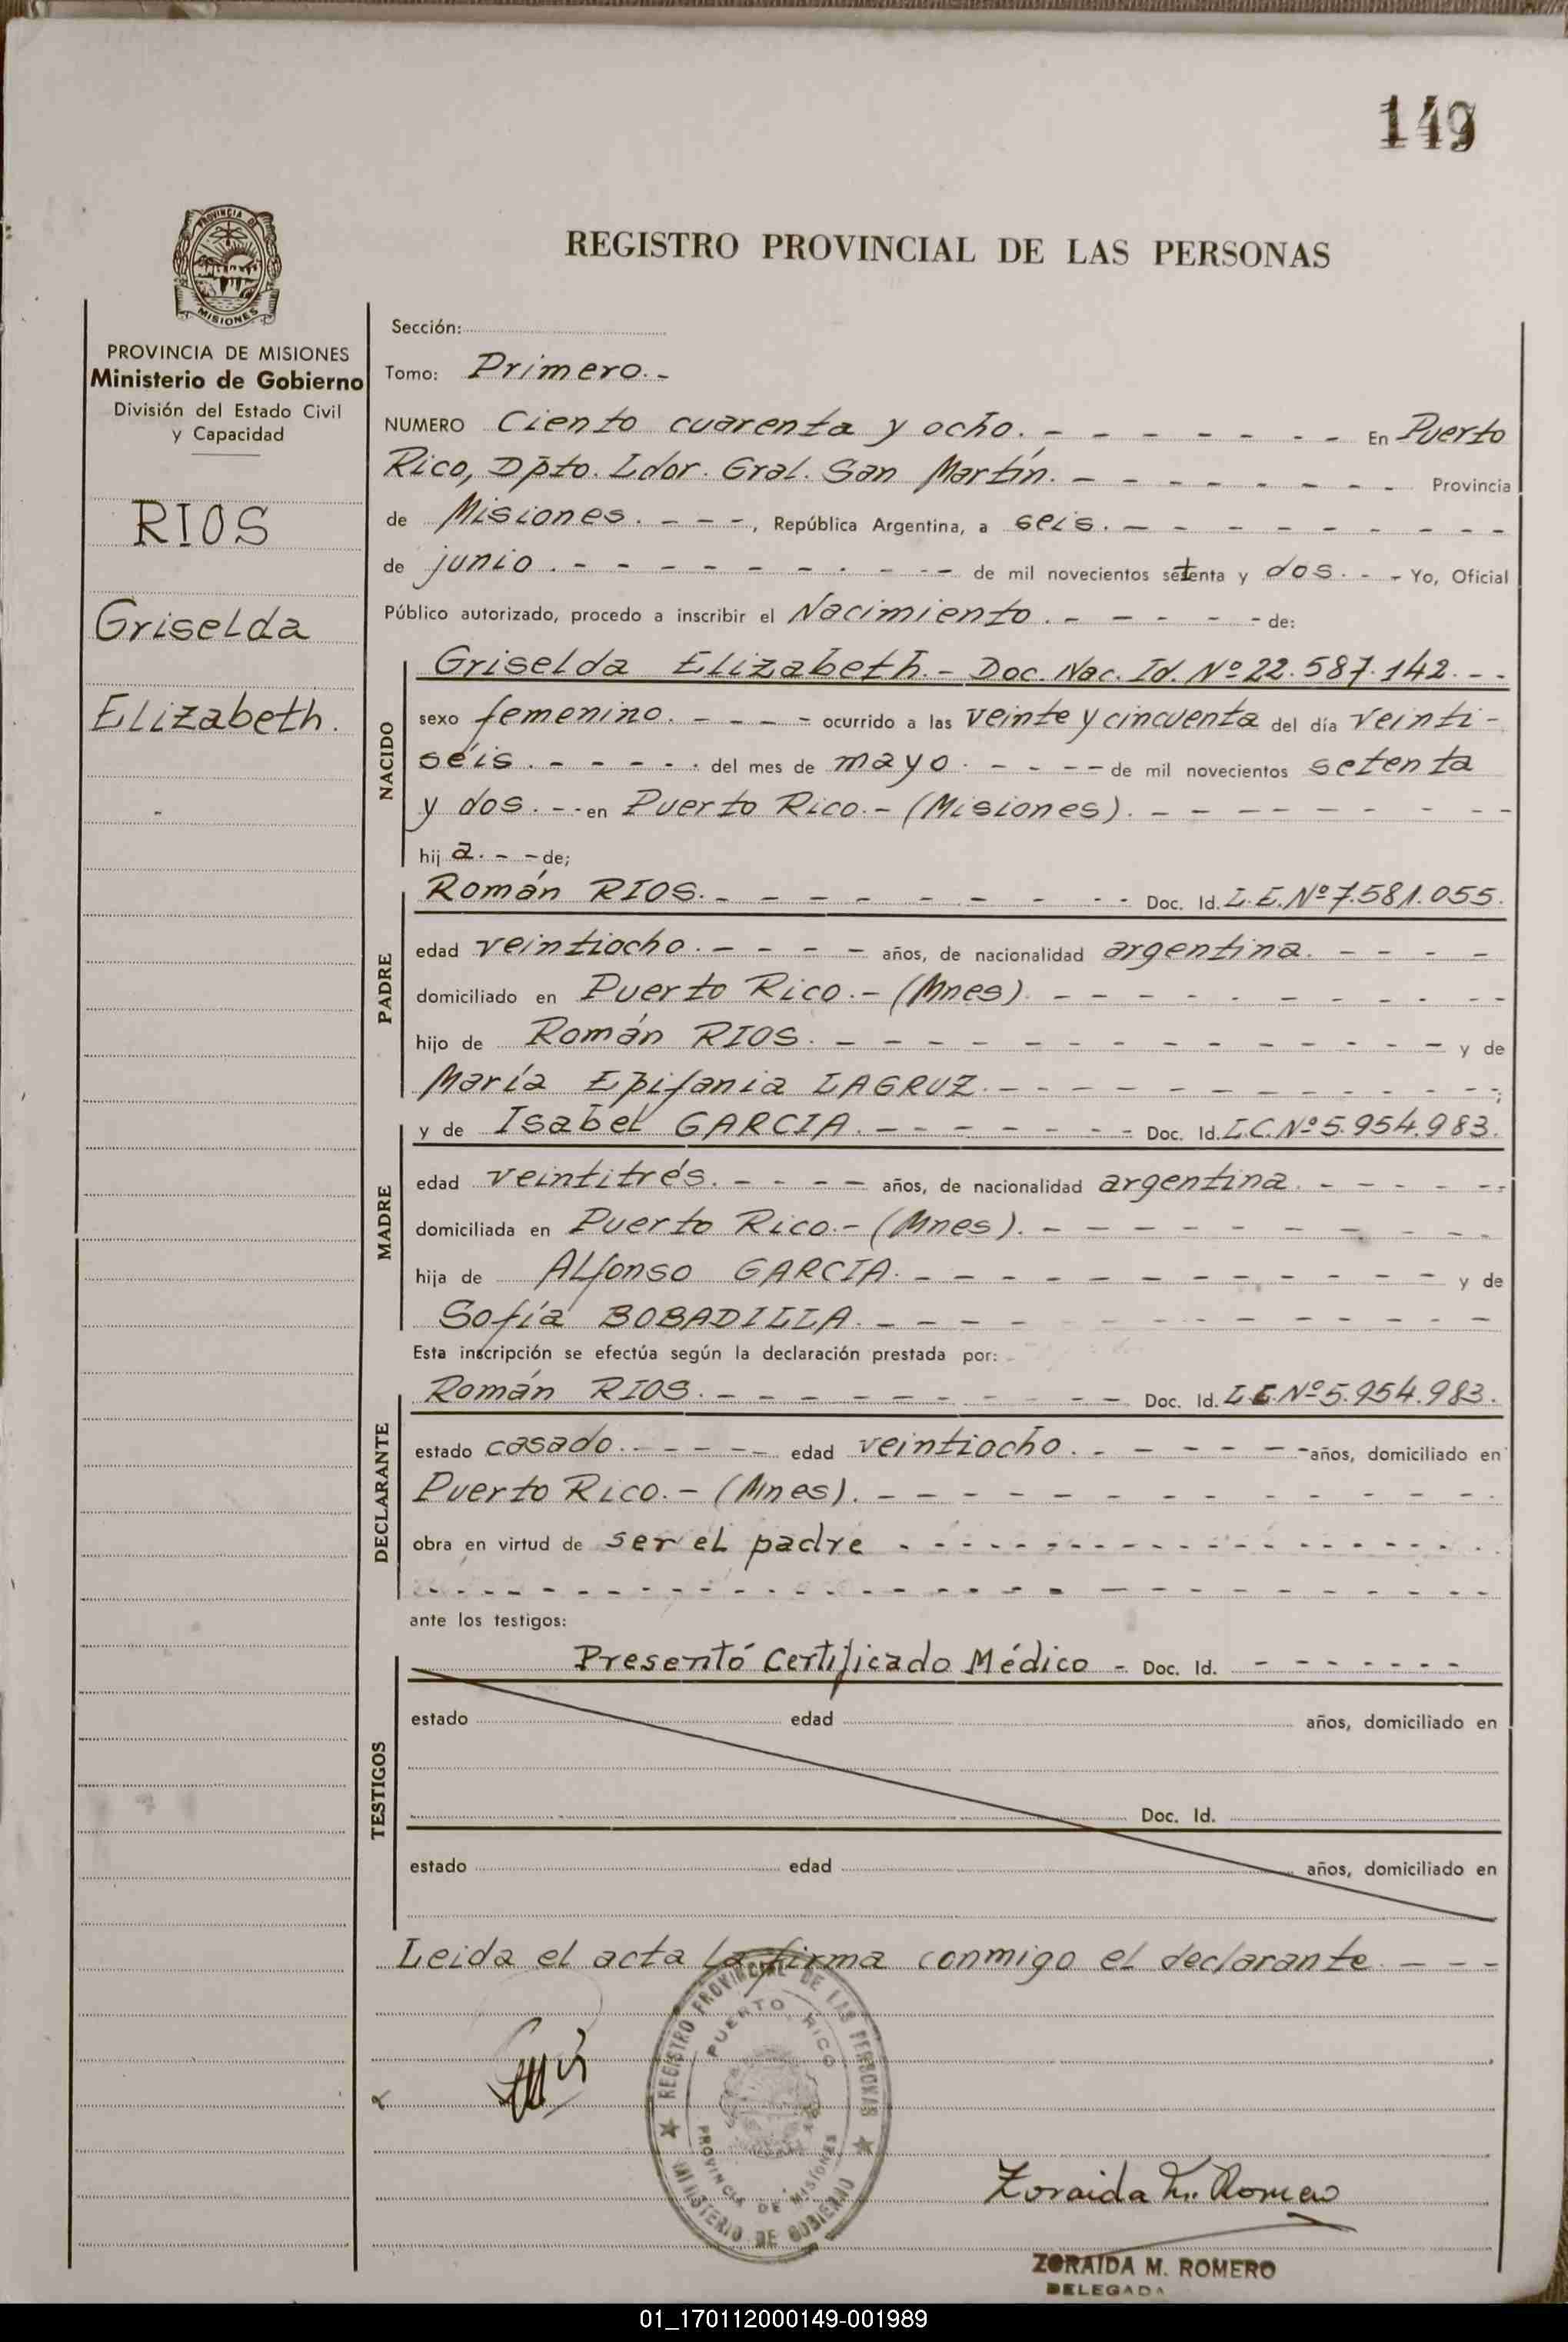 149
PROVINCIA DE
MISIONES
REGISTRO PROVINCIAL DE LAS PERSONAS
PROVINCIA DE MISIONES
Ministerio de Gobierno
División del Estado Civil
y Capacidad
RIOS
Griselda
Elizabeth.
Sección:
Tomo: Primero.-
NUMERO Ciento cuarenta y ocho. - - - - - - - - En Puerto
Rico, Dpto. Ldor. Gral. San Martín. - - - - - - - - Provincia
de Misiones. - - -, República Argentina, a seis. - - - - - - - - -
de junio. - - - - - - - - - - de mil novecientos setenta y dos. - - Yo, Oficial
Público autorizado, procedo a inscribir el Nacimiento. - - - - - de:
NACIDO
Griselda Elizabeth. - Doc. Nac. Id. Nº 22.587.142. - -
sexo femenino. - - - - ocurrido a las veinte y cincuenta del día veinti-
séis. - - - - - del mes de mayo. - - - - de mil novecientos setenta
y dos. - - en Puerto Rico. - (Misiones). - - - - - - - - -
hij a. - - de;
PADRE
Román RIOS. - - - - - - - - - Doc. Id. L.E. Nº 7.581.055.
edad veintiocho. - - - - años, de nacionalidad argentina. - - - -
domiciliado en Puerto Rico. - (Mnes). - - - - - - - - - -
hijo de Román RIOS. - - - - - - - - - - - - - - y de
María Epifania LAGRUZ. - - - - - - - - - - - -;
MADRE
y de Isabel GARCIA. - - - - - - - Doc. Id. L.C. Nº 5.954.983.
edad veintitrés. - - - - años, de nacionalidad argentina. - - - - -
domiciliada en Puerto Rico. - (Mnes). - - - - - - - - - -
hija de Alfonso GARCIA. - - - - - - - - - - - - y de
Sofía BOBADILLA. - - - - - - - - - - - - - -
Esta inscripción se efectúa según la declaración prestada por:
DECLARANTE
Román RIOS. - - - - - - - - - - Doc. Id. L.E. Nº 5.954.983.
estado casado. - - - - - edad veintiocho. - - - - - - años, domiciliado en
Puerto Rico. - (Mnes). - - - - - - - - - - - - -
obra en virtud de ser el padre - - - - - - - - - - - - - - - - -
- - - - - - - - - - - - - - - - - - - - - - - -
ante los testigos:
TESTIGOS
Presentó Certificado Médico - Doc. Id. - - - - - - -
estado edad años, domiciliado en
Doc. Id.
estado edad años, domiciliado en
Leida el acta la firma conmigo el declarante. - - -
REGISTRO PROVINCIAL DE LAS PERSONAS
PUERTO RICO
PROVINCIA DE MISIONES
MINISTERIO DE GOBIERNO
Zoraida M. Romero
ZORAIDA M. ROMERO
DELEGADA
01_170112000149-001989